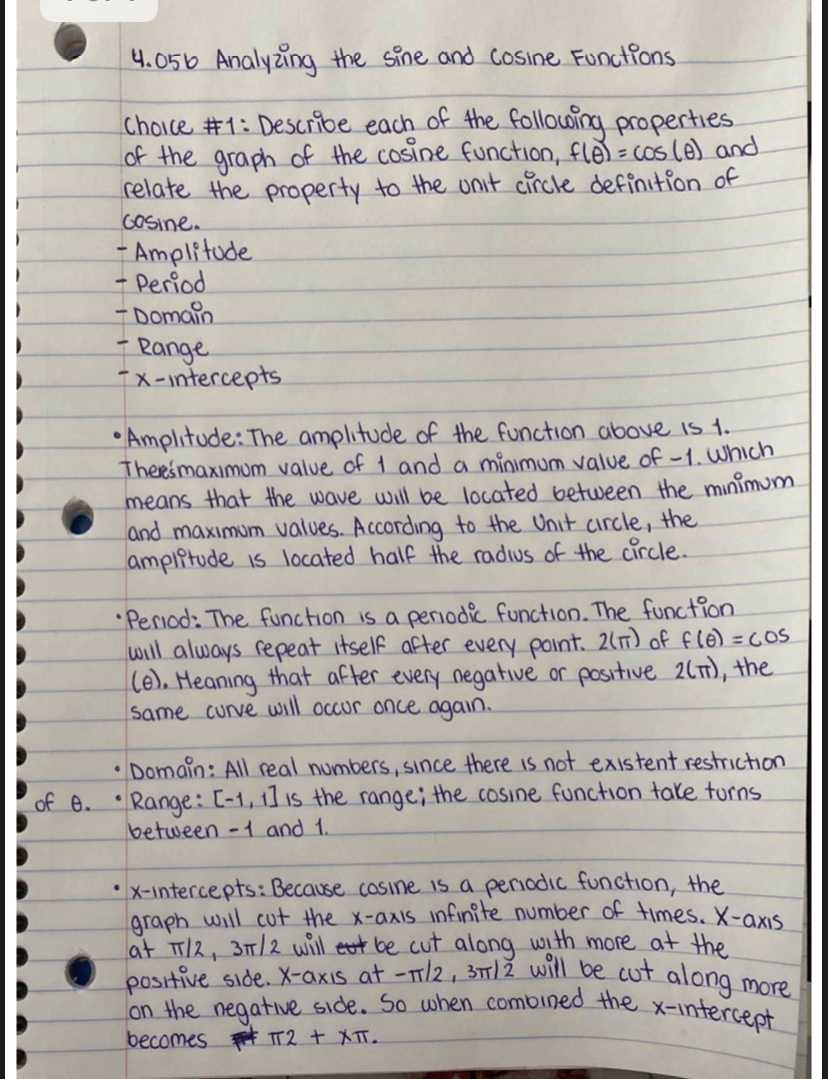 4.05b Analyzing the sine and cosine Functions
Choice #1: Describe each of the following properties
of the graph of the cosine function, f(θ) = cos(θ) and
relate the property to the unit circle definition of
cosine.
- Amplitude
- Period
- Domain
- Range
- x-intercepts
• Amplitude: The amplitude of the function above is 1.
There's maximum value of 1 and a minimum value of -1. Which
means that the wave will be located between the minimum
and maximum values. According to the Unit circle, the
amplitude is located half the radius of the circle.
• Period: The function is a periodic function. The function
will always repeat itself after every point. 2(π) of f(θ) = cos
(θ). Meaning that after every negative or positive 2(π), the
same curve will occur once again.
• Domain: All real numbers, since there is not existent restriction
of θ. • Range: [-1, 1] is the range; the cosine function take turns
between -1 and 1.
• x-intercepts: Because cosine is a periodic function, the
graph will cut the x-axis infinite number of times. X-axis
at π/2, 3π/2 will be cut along with more at the
positive side. X-axis at -π/2, 3π/2 will be cut along more
on the negative side. So when combined the x-intercept
becomes π2 + xπ.